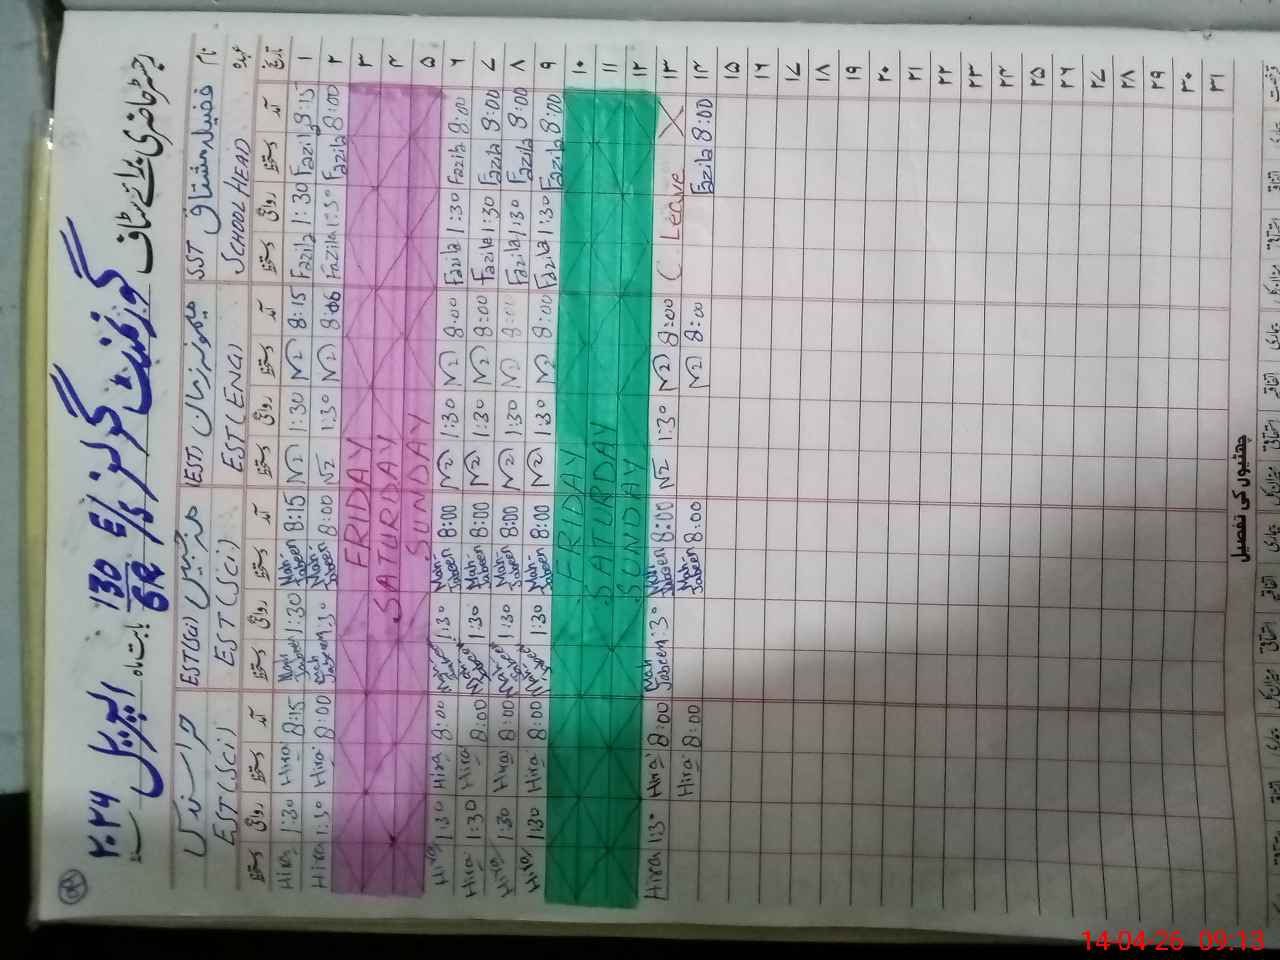 رجسٹر حاضری برائے سٹاف گورنمنٹ گرلز E/S 130 6R بابت ماہ اپریل ۲۰۲۶
نام SST EST EST(Sci)
عہدہ SCHOOL HEAD EST(ENG) EST(Sci) EST(Sci)
تاریخ آمد دستخط روانگی دستخط آمد دستخط روانگی دستخط آمد دستخط روانگی دستخط آمد دستخط روانگی دستخط
۱ 8:15 Fazila 1:30 Fazila 8:15 1:30 8:15 Mah Jabeen 1:30 Mah Jabeen 8:15 Hira 1:30 Hira
۲ 8:00 Fazila 1:30 Fazila 8:06 1:30 8:00 Mah Jabeen 1:30 Jabeen 8:00 Hira 1:30 Hira
۳ FRIDAY
۴ SATURDAY
۵ SUNDAY
۶ 8:00 Fazila 1:30 Fazila 8:00 1:30 8:00 Mah Jabeen 1:30 8:00 Hira 1:30 Hira
۷ 8:00 Fazila 1:30 Fazila 8:00 1:30 8:00 Mah Jabeen 1:30 8:00 Hira 1:30 Hira
۸ 8:00 Fazila 1:30 Fazila 8:00 1:30 8:00 Mah Jabeen 1:30 8:00 Hira 1:30 Hira
۹ 8:00 Fazila 1:30 Fazila 8:00 1:30 8:00 Mah Jabeen 1:30 8:00 Hira 1:30 Hira
۱۰ FRIDAY
۱۱ SATURDAY
۱۲ SUNDAY
۱۳ C. Leave 8:00 1:30 8:00 Mah Jabeen 1:30 Mah Jabeen 8:00 Hira 1:30 Hira
۱۴ 8:00 Fazila 8:00 8:00 Mah Jabeen 8:00 Hira
۱۵
۱۶
۱۷
۱۸
۱۹
۲۰
۲۱
۲۲
۲۳
۲۴
۲۵
۲۶
۲۷
۲۸
۲۹
۳۰
۳۱
چھٹیوں کی تفصیل
14-04-26 09:13